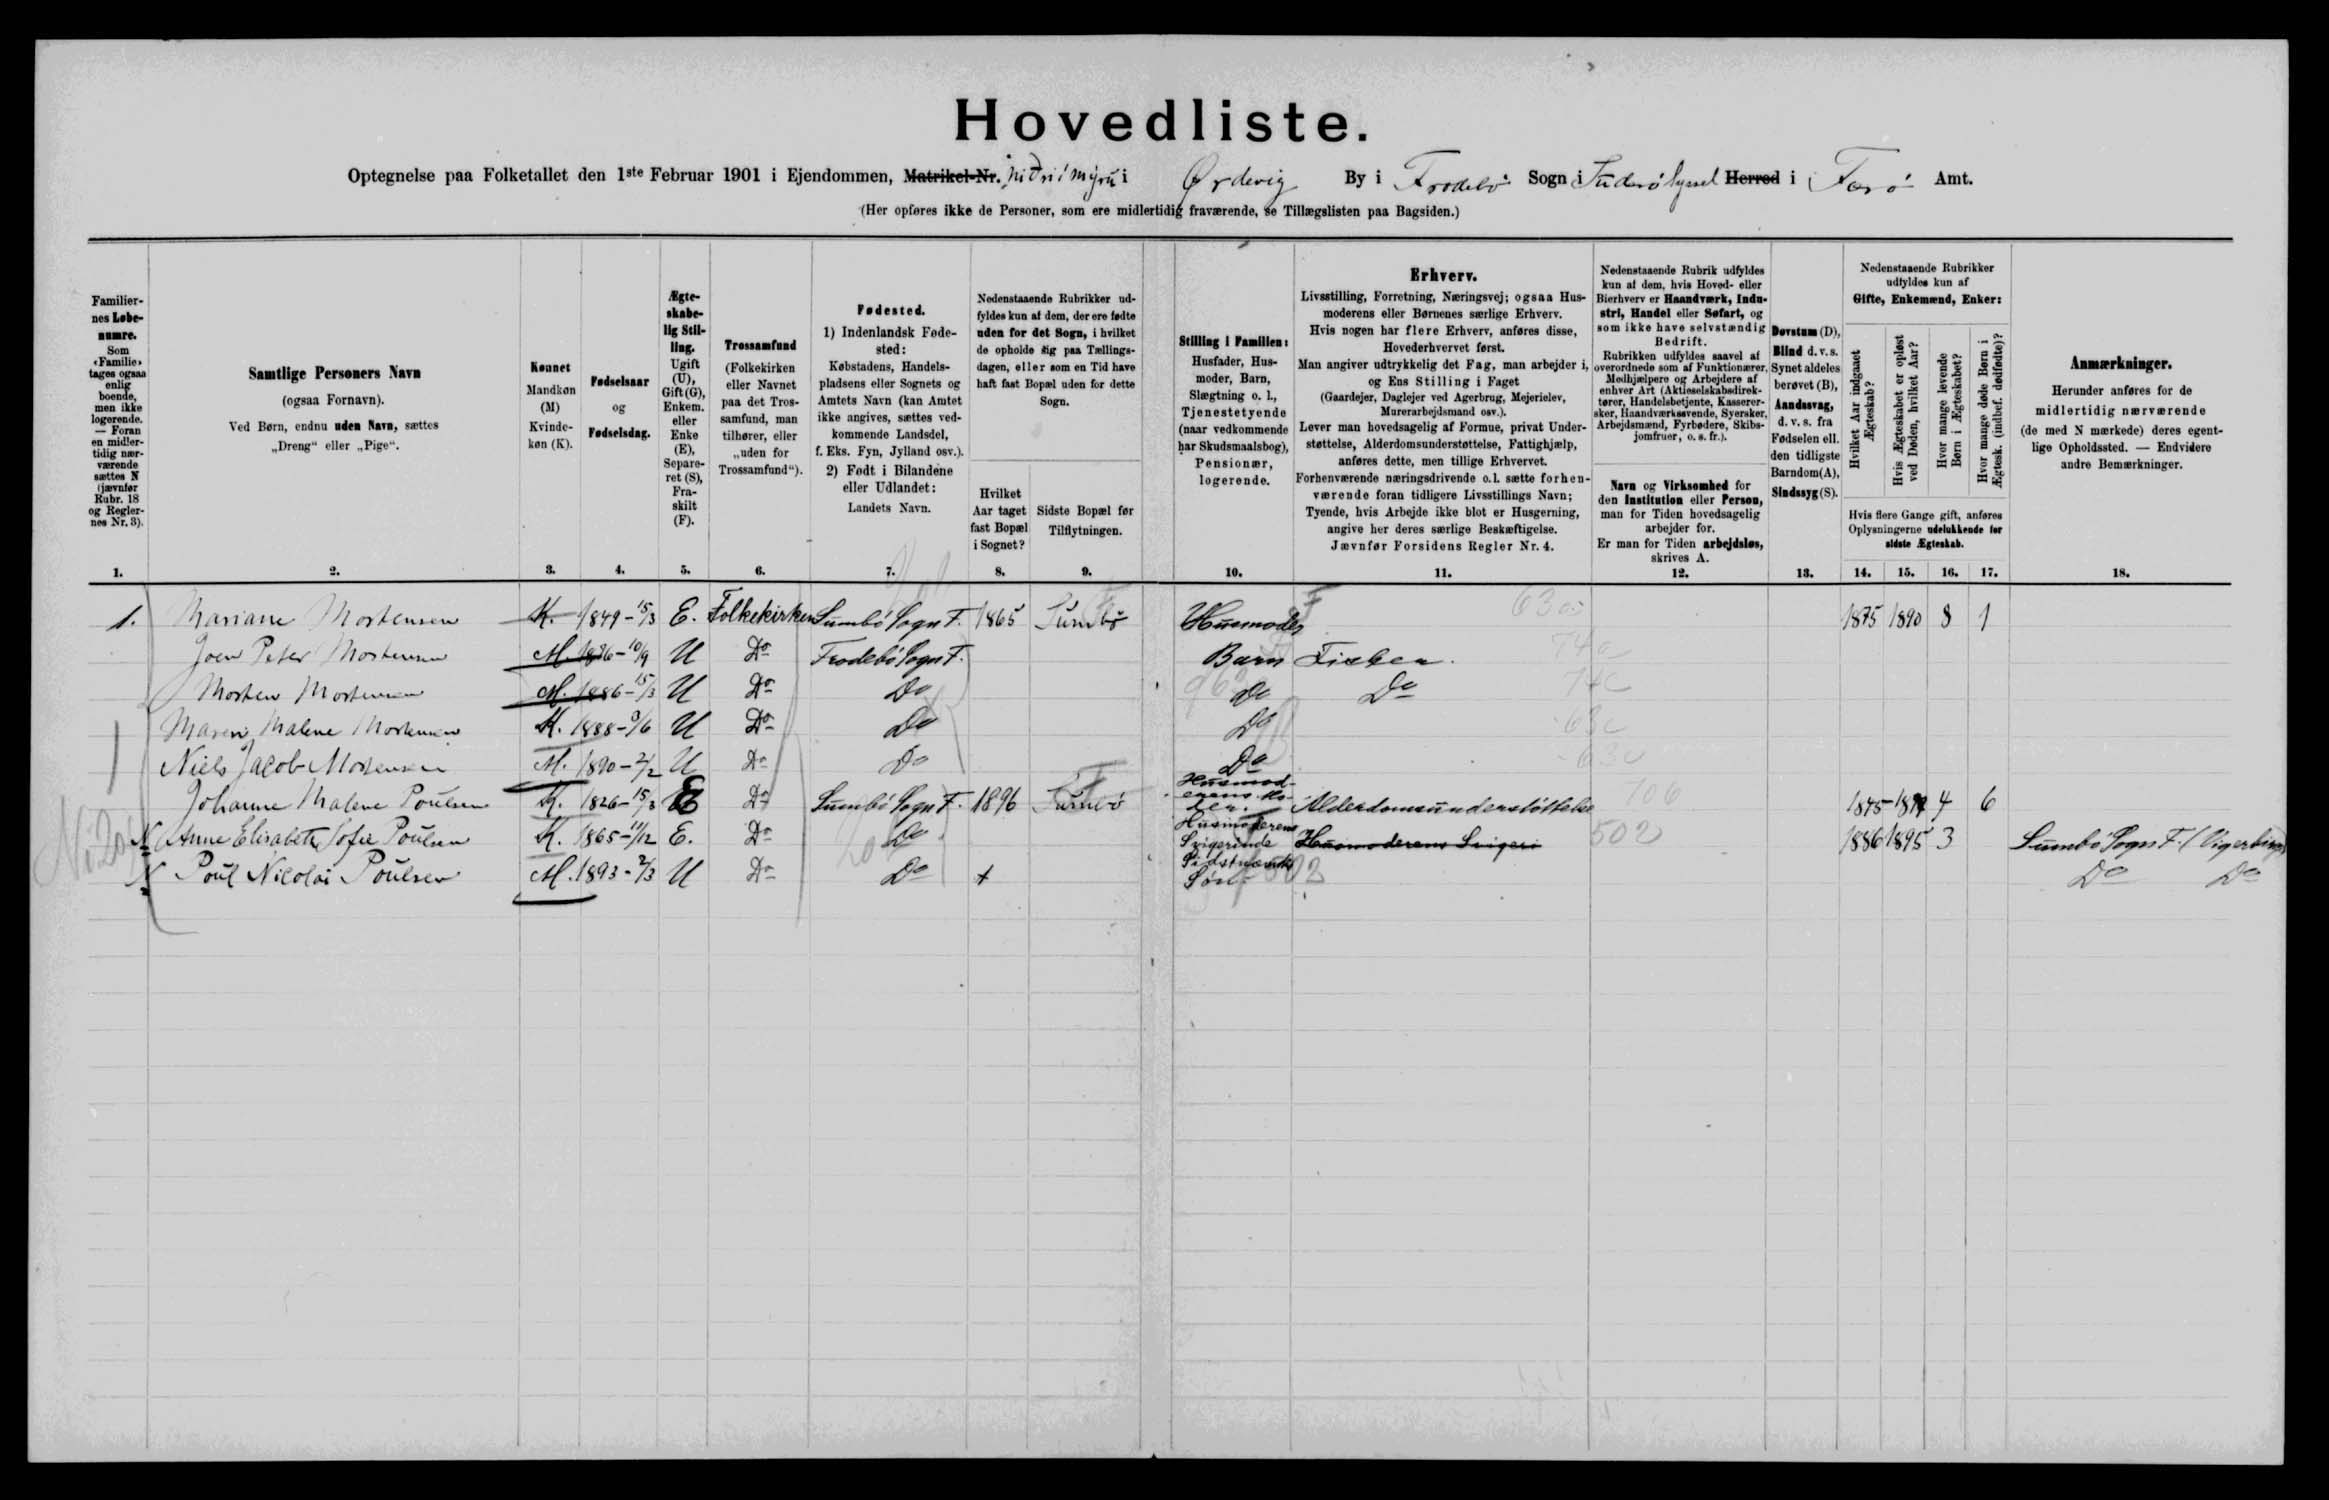 Hovedliste.
Optegnelse paa Folketallet den 1ste Februar 1901 i Ejendommen, Matrikel-Nr. niðri i mýru i Ördevig By i Frodebö Sogn i Suderö Syssel Herred i Færö Amt.
(Her opføres ikke de Personer, som ere midlertidig fraværende, se Tillægslisten paa Bagsiden.)
Familier-
nes Løbe-
numre.
Som
«Familie»
tages ogsaa
enlig
boende,
men ikke
logerende.
— Foran
en midler-
tidig nær-
værende
sættes N
(jævnfør
Rubr. 18
og Regler-
nes Nr. 3).
1.
Samtlige Personers Navn
(ogsaa Fornavn).
Ved Børn, endnu uden Navn, sættes
„Dreng“ eller „Pige“.
2.
Kønnet
Mandkøn
(M)
Kvinde-
køn (K).
3.
Fødselsaar
og
Fødselsdag.
4.
Ægte-
skabe-
lig Stil-
ling.
Ugift
(U),
Gift (G),
Enkem.
eller
Enke
(E),
Separe-
ret (S),
Fra-
skilt
(F).
5.
Trossamfund
(Folkekirken
eller Navnet
paa det Tros-
samfund, man
tilhører, eller
„uden for
Trossamfund“).
6.
Fødested.
1) Indenlandsk Føde-
sted:
Købstadens, Handels-
pladsens eller Sognets og
Amtets Navn (kan Amtet
ikke angives, sættes ved-
kommende Landsdel,
f. Eks. Fyn, Jylland osv.).
2) Født i Bilandene
eller Udlandet:
Landets Navn.
7.
Nedenstaaende Rubrikker ud-
fyldes kun af dem, der ere fødte
uden for det Sogn, i hvilket
de opholde sig paa Tællings-
dagen, eller som en Tid have
haft fast Bopæl uden for dette
Sogn.
Hvilket
Aar taget
fast Bopæl
i Sognet?
8.
Sidste Bopæl før
Tilflytningen.
9.
Stilling i Familien:
Husfader, Hus-
moder, Barn,
Slægtning o. l.,
Tjenestetyende
(naar vedkommende
har Skudsmaalsbog),
Pensionær,
logerende.
10.
Erhverv.
Livsstilling, Forretning, Næringsvej; ogsaa Hus-
moderens eller Børnenes særlige Erhverv.
Hvis nogen har flere Erhverv, anføres disse,
Hovederhvervet først.
Man angiver udtrykkelig det Fag, man arbejder i,
og Ens Stilling i Faget
(Gaardejer, Daglejer ved Agerbrug, Mejerielev,
Murerarbejdsmand osv.).
Lever man hovedsagelig af Formue, privat Under-
støttelse, Alderdomsunderstøttelse, Fattighjælp,
anføres dette, men tillige Erhvervet.
Forhenværende næringsdrivende o. l. sætte forhen-
værende foran tidligere Livsstillings Navn;
Tyende, hvis Arbejde ikke blot er Husgerning,
angive her deres særlige Beskæftigelse.
Jævnfør Forsidens Regler Nr. 4.
11.
Nedenstaaende Rubrik udfyldes
kun af dem, hvis Hoved- eller
Bierhverv er Haandværk, Indu-
stri, Handel eller Søfart, og
som ikke have selvstændig
Bedrift.
Rubrikken udfyldes saavel af
overordnede som af Funktionærer,
Medhjælpere og Arbejdere af
enhver Art (Aktieselskabsdirek-
tører, Handelsbetjente, Kasserer-
sker, Haandværkssvende, Syersker,
Arbejdsmænd, Fyrbødere, Skibs-
jomfruer, o. s. fr.).
Navn og Virksomhed for
den Institution eller Person,
man for Tiden hovedsagelig
arbejder for.
Er man for Tiden arbejdsløs,
skrives A.
12.
Døvstum (D),
Blind d. v. s.
Synet aldeles
berøvet (B),
Aandssvag,
d. v. s. fra
Fødselen ell.
den tidligste
Barndom (A),
Sindssyg (S).
13.
Nedenstaaende Rubrikker
udfyldes kun af
Gifte, Enkemænd, Enker:
Hvilket Aar indgaaet
Ægteskab?
Hvis Ægteskabet er opløst
ved Døden, hvilket Aar?
Hvor mange levende
Børn i Ægteskabet?
Hvor mange døde Børn i
Ægtesk. (indbef. dødfødte)?
Hvis flere Gange gift, anføres
Oplysningerne udelukkende for
sidste Ægteskab.
14. 15. 16. 17.
Anmærkninger.
Herunder anføres for de
midlertidig nærværende
(de med N mærkede) deres egent-
lige Opholdssted. — Endvidere
andre Bemærkninger.
18.
1. Mariane Mortensen K. 1849-15/3 E. Folkekirken Sumbö Sogn F. 1865 Sumbö Husmoder 1875 1890 8 1
Joen Peter Mortensen M. 1876-10/9 U Do Frodebö Sogn F. Barn Fisker.
Morten Mortensen M. 1886-15/3 U Do Do Do Do
Maren Malene Mortensen K. 1888-9/6 U Do Do Do
Niels Jacob Mortensen M. 1890-2/2 U Do Do Do
Johanne Malene Poulsen K. 1826-15/3 E Do Sumbö Sogn F. 1896 Sumbö Husmoderens Moder. Alderdomsunderstöttelse 106 4 6
N Anne Elisabeth Sofie Poulsen K. 1865-10/12 E. Do Do Husmoderens Svigerinde Husmoderens Svigeri 502 1886 1895 3 Sumbö Sogn F.
N Poul Nicolai Poulsen M. 1893-2/3 U Do Do + Sidstnævntes Sön Do Do